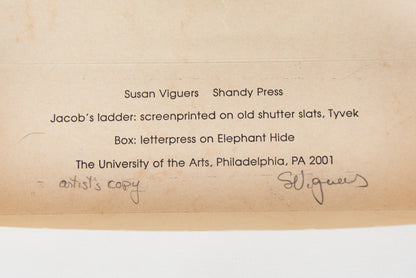 Susan Viguers Shandy Press
Jacob's ladder: screenprinted on old shutter slats, Tyvek
Box: letterpress on Elephant Hide
The University of the Arts, Philadelphia, PA 2001
artist's copy SViguers